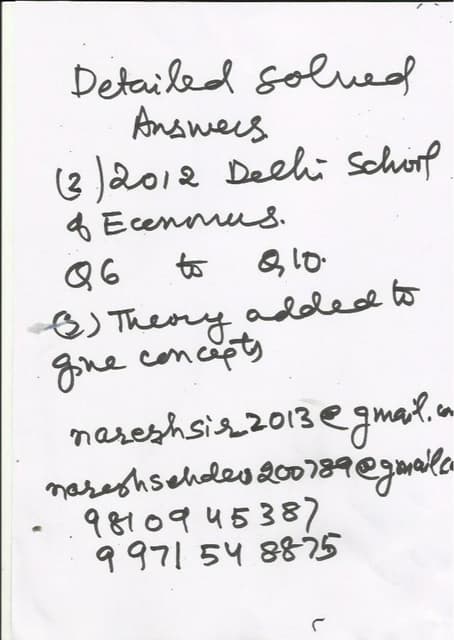 Detailed solved
Answers
(2) 2012 Delhi School
of Economics.
Q6 to Q10.
(3) Theory added to
give concepts
nareshsir2013@gmail.co
nareshsehdev200789@gmail.c
9810945387
9971548875